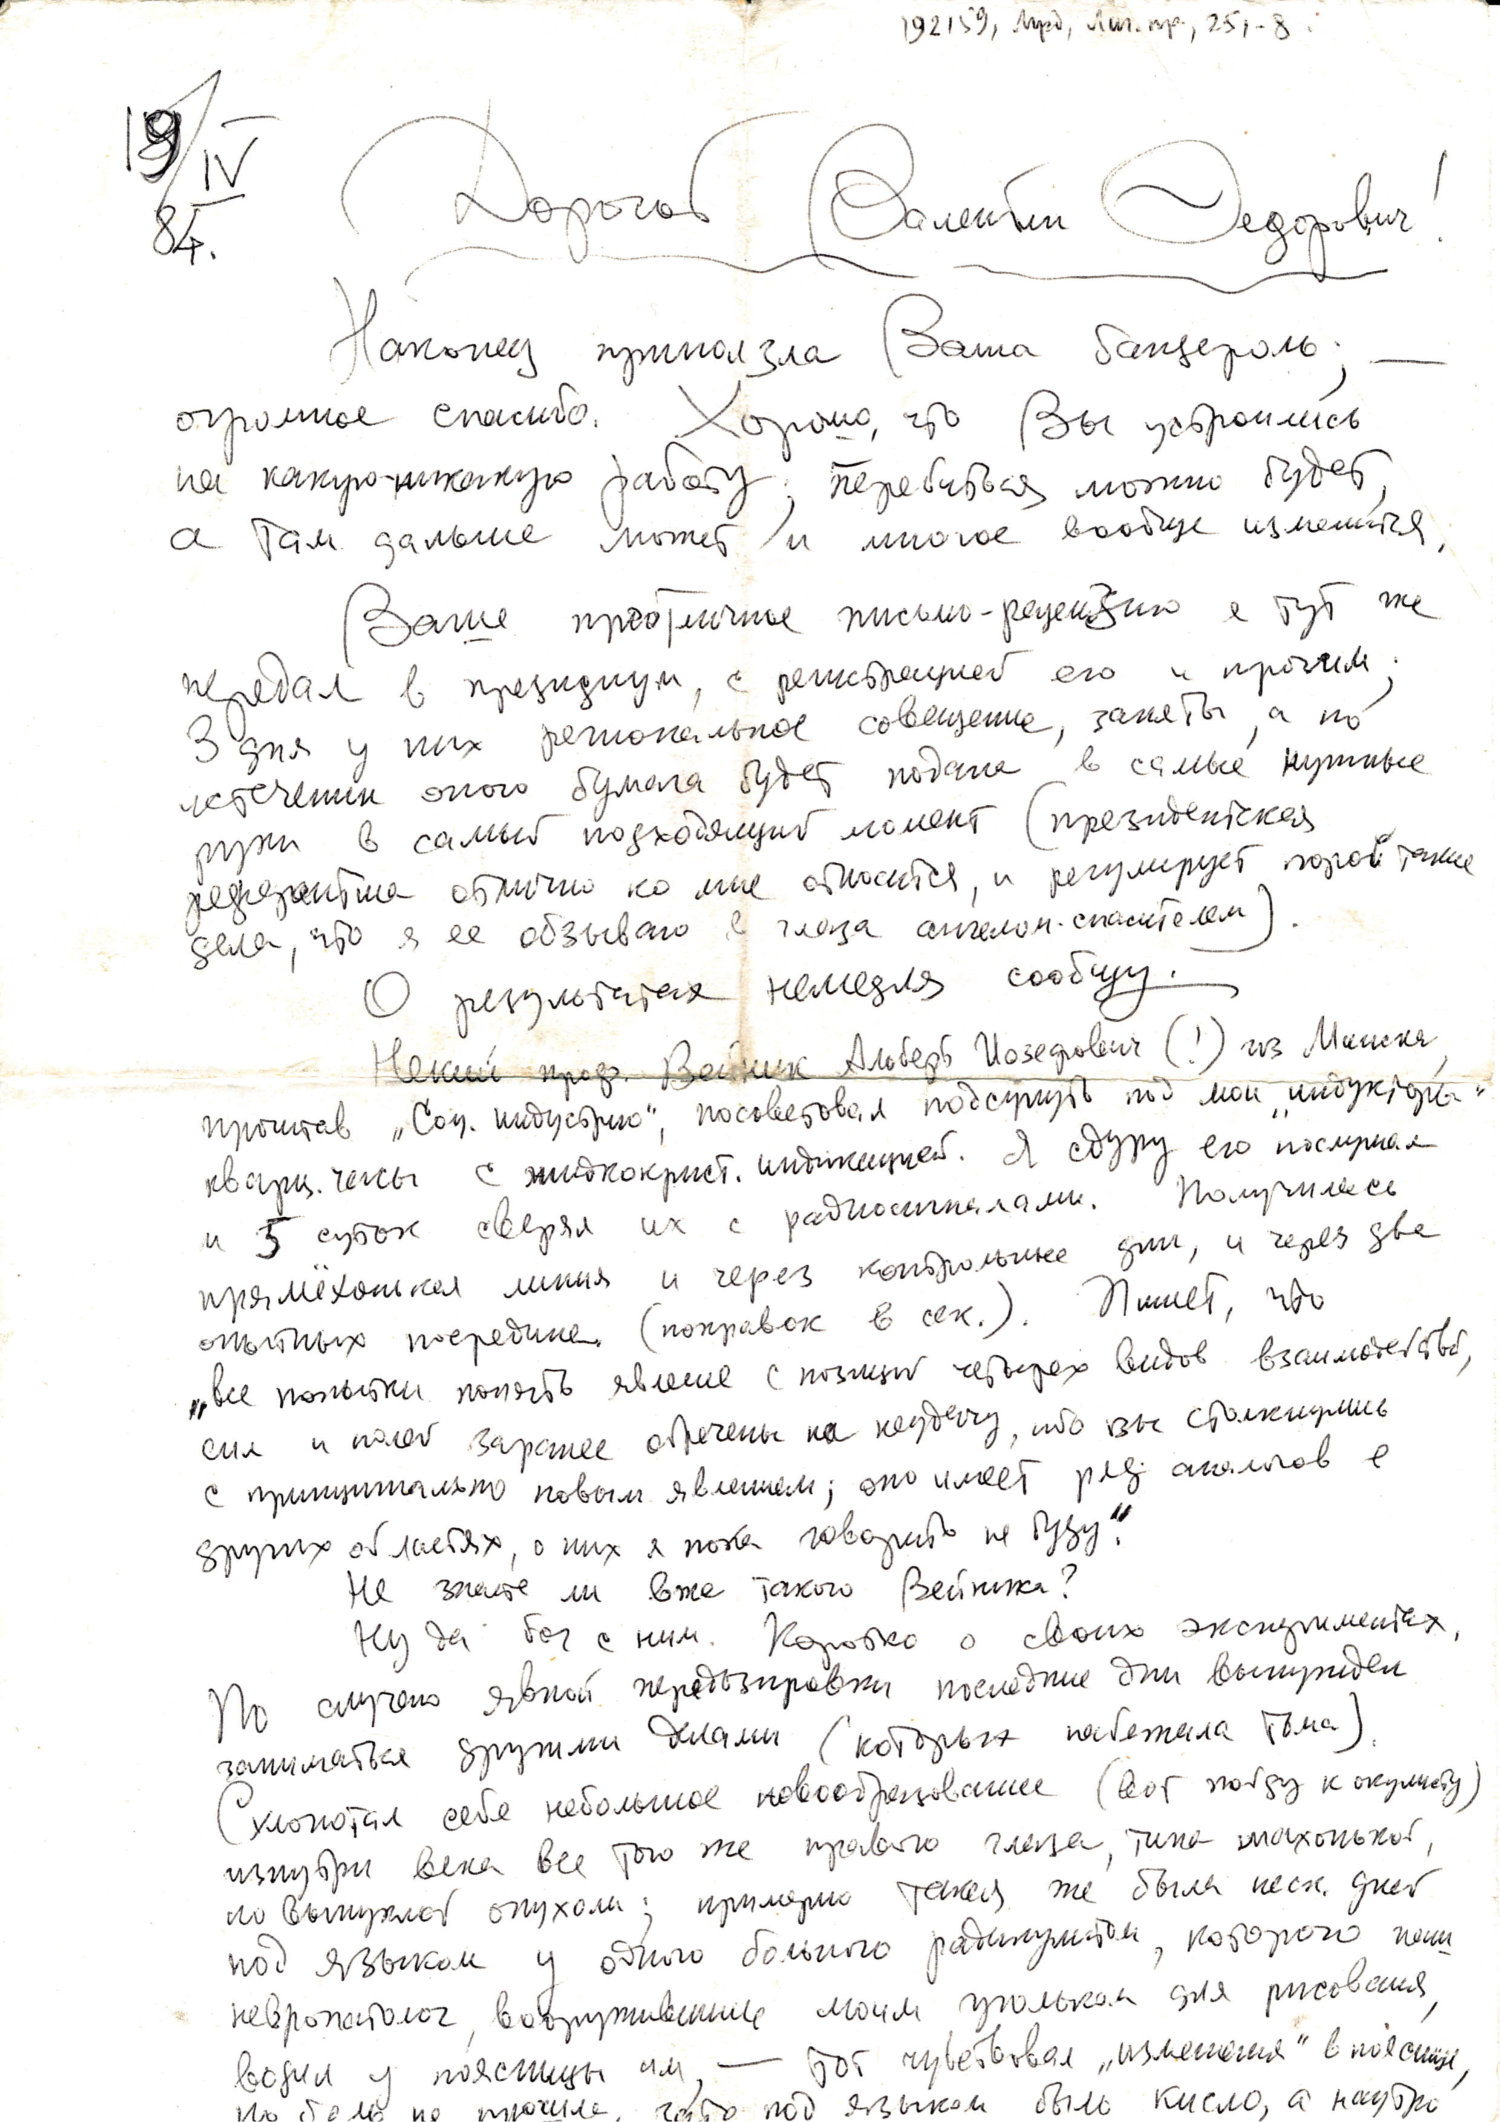 192159,
19/IV
84.
Дорогой Валентин Федорович!
Наконец приползла Ваша бандероль; —
огромное спасибо. Хорошо, что Вы устроились
на какую-никакую работу; перебиться можно будет,
а там дальше может и многое вообще изменится.
Ваше преотличное письмо-рецензию я тут же
передал в президиум, с регистрацией его и прочим;
3 дня у них региональное совещание, заняты, а по
истечении оного бумага будет подана в самые нужные
руки в самый подходящий момент (президентская
референтша отлично ко мне относится, и регулирует порой такие
дела, что я ее обзываю в глаза ангелом-спасителем).
О результатах немедля сообщу.
Некий проф. Вейник Альберт Иозефович (!) из Минска,
прочитав „Соц. индустрию“, посоветовал подсунуть под мои „индукторы“
кварц. часы с жидкокрист. индикацией. Я сдуру его послушал
и 5 суток сверял их с радиосигналами. Получилась
прямёхонькая линия и через контрольные дни, и через два
опытных посредине (поправок в сек.). Пишет, что
„все попытки понять явление с позиций четырех видов взаимодействий,
сил и полей заранее обречены на неудачу, ибо вы столкнулись
с принципиально новым явлением; оно имеет ряд аналогов в
других областях, о них я пока говорить не буду“.
Не знаете ли вже такого Вейника?
Ну да бог с ним. Коротко о своих экспериментах.
По случаю явной передозировки последние дни вынужден
заниматься другими делами (которых набежала тьма).
Схлопотал себе небольшое новообразование (вот пойду к окулисту)
изнутри века все того же правого глаза, типа махонькой,
но выпуклой опухоли; примерно такая же была неск. дней
под языком у одного больного радикулитом, которого наш
невропатолог, вооружившись моим угольком для рисования,
водил у поясницы им, — тот чувствовал „изменения“ в пояснице,
но боль не прошла, зато под языком было кисло, а наутро